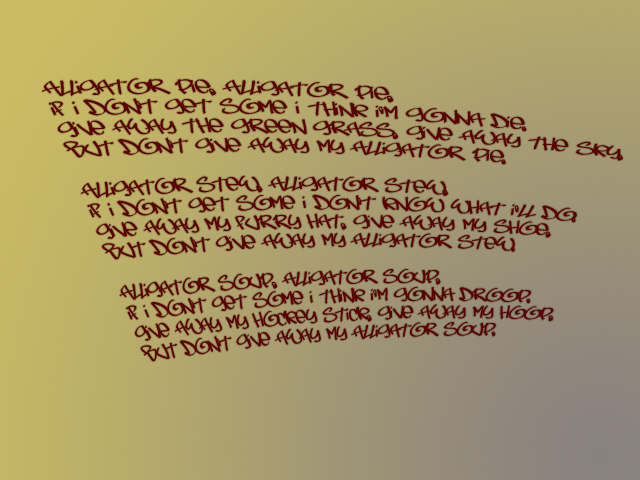 Alligator pie, alligator pie,
If I don't get some I think I'm gonna die.
Give away the green grass, give away the sky,
But don't give away my alligator pie.

Alligator stew, alligator stew,
If I don't get some I don't know what I'll do.
Give away my furry hat, give away my shoe,
But don't give away my alligator stew.

Alligator soup, alligator soup,
If I don't get some I think I'm gonna droop.
Give away my hockey stick, give away my hoop,
But don't give away my alligator soup.